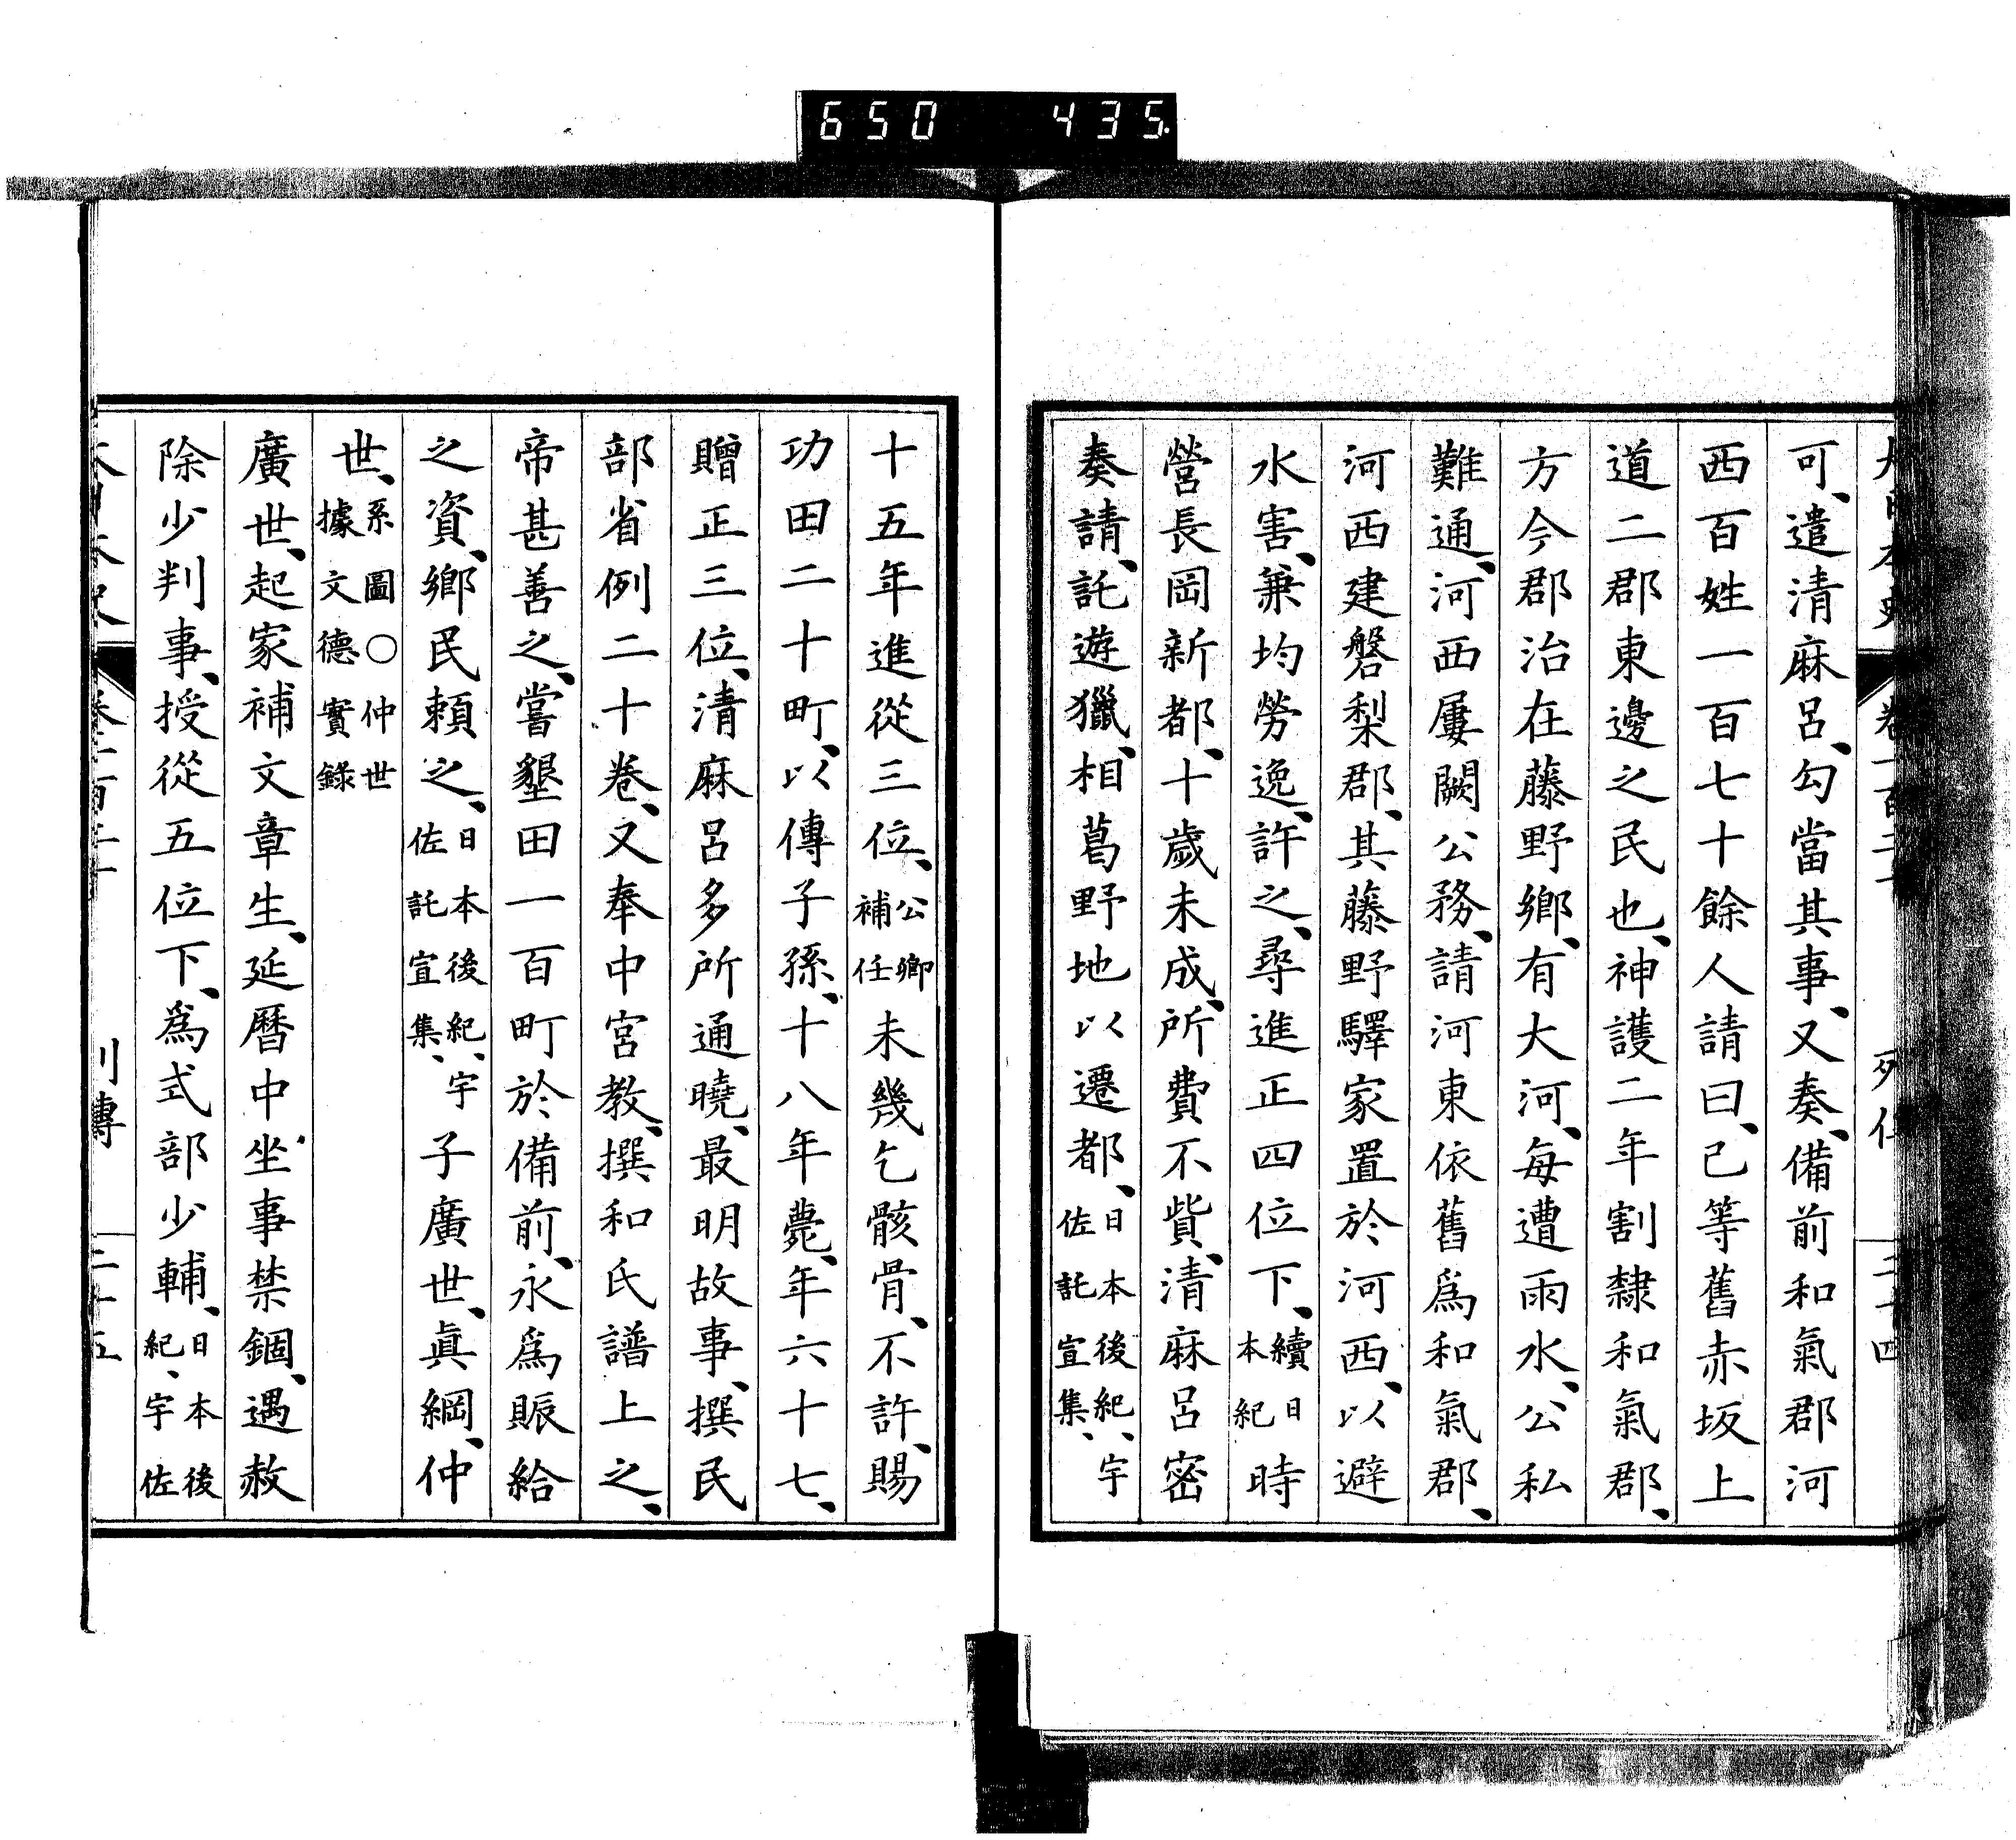 650 435
可、遣清麻呂、勾當其事、又奏、備前和氣郡河
西百姓一百七十餘人請曰、己等舊赤坂上
道二郡東邊之民也、神護二年割隸和氣郡、
方今郡治在藤野鄉、有大河、每遭雨水、公私
難通、河西屢闕公務、請河東依舊爲和氣郡、
河西建磐梨郡、其藤野驛家置於河西、以避
水害、兼均勞逸、許之、尋進正四位下、續日本紀時
營長岡新都、十歲未成、所費不貲、清麻呂密
奏請、託遊獵、相葛野地以遷都、日本後紀、宇佐託宣集、
十五年進從三位、公卿補任未幾乞骸骨、不許、賜
功田二十町、以傳子孫、十八年薨、年六十七、
贈正三位、清麻呂多所通曉、最明故事、撰民
部省例二十卷、又奉中宮教、撰和氏譜上之、
帝甚善之、嘗墾田一百町於備前、永爲賑給
之資、鄉民賴之、日本後紀、宇佐託宣集、子廣世、眞綱、仲
世、系圖○仲世據文德實錄
廣世、起家補文章生、延曆中坐事禁錮、遇赦
除少判事、授從五位下、爲式部少輔、日本後紀、宇佐
列傳